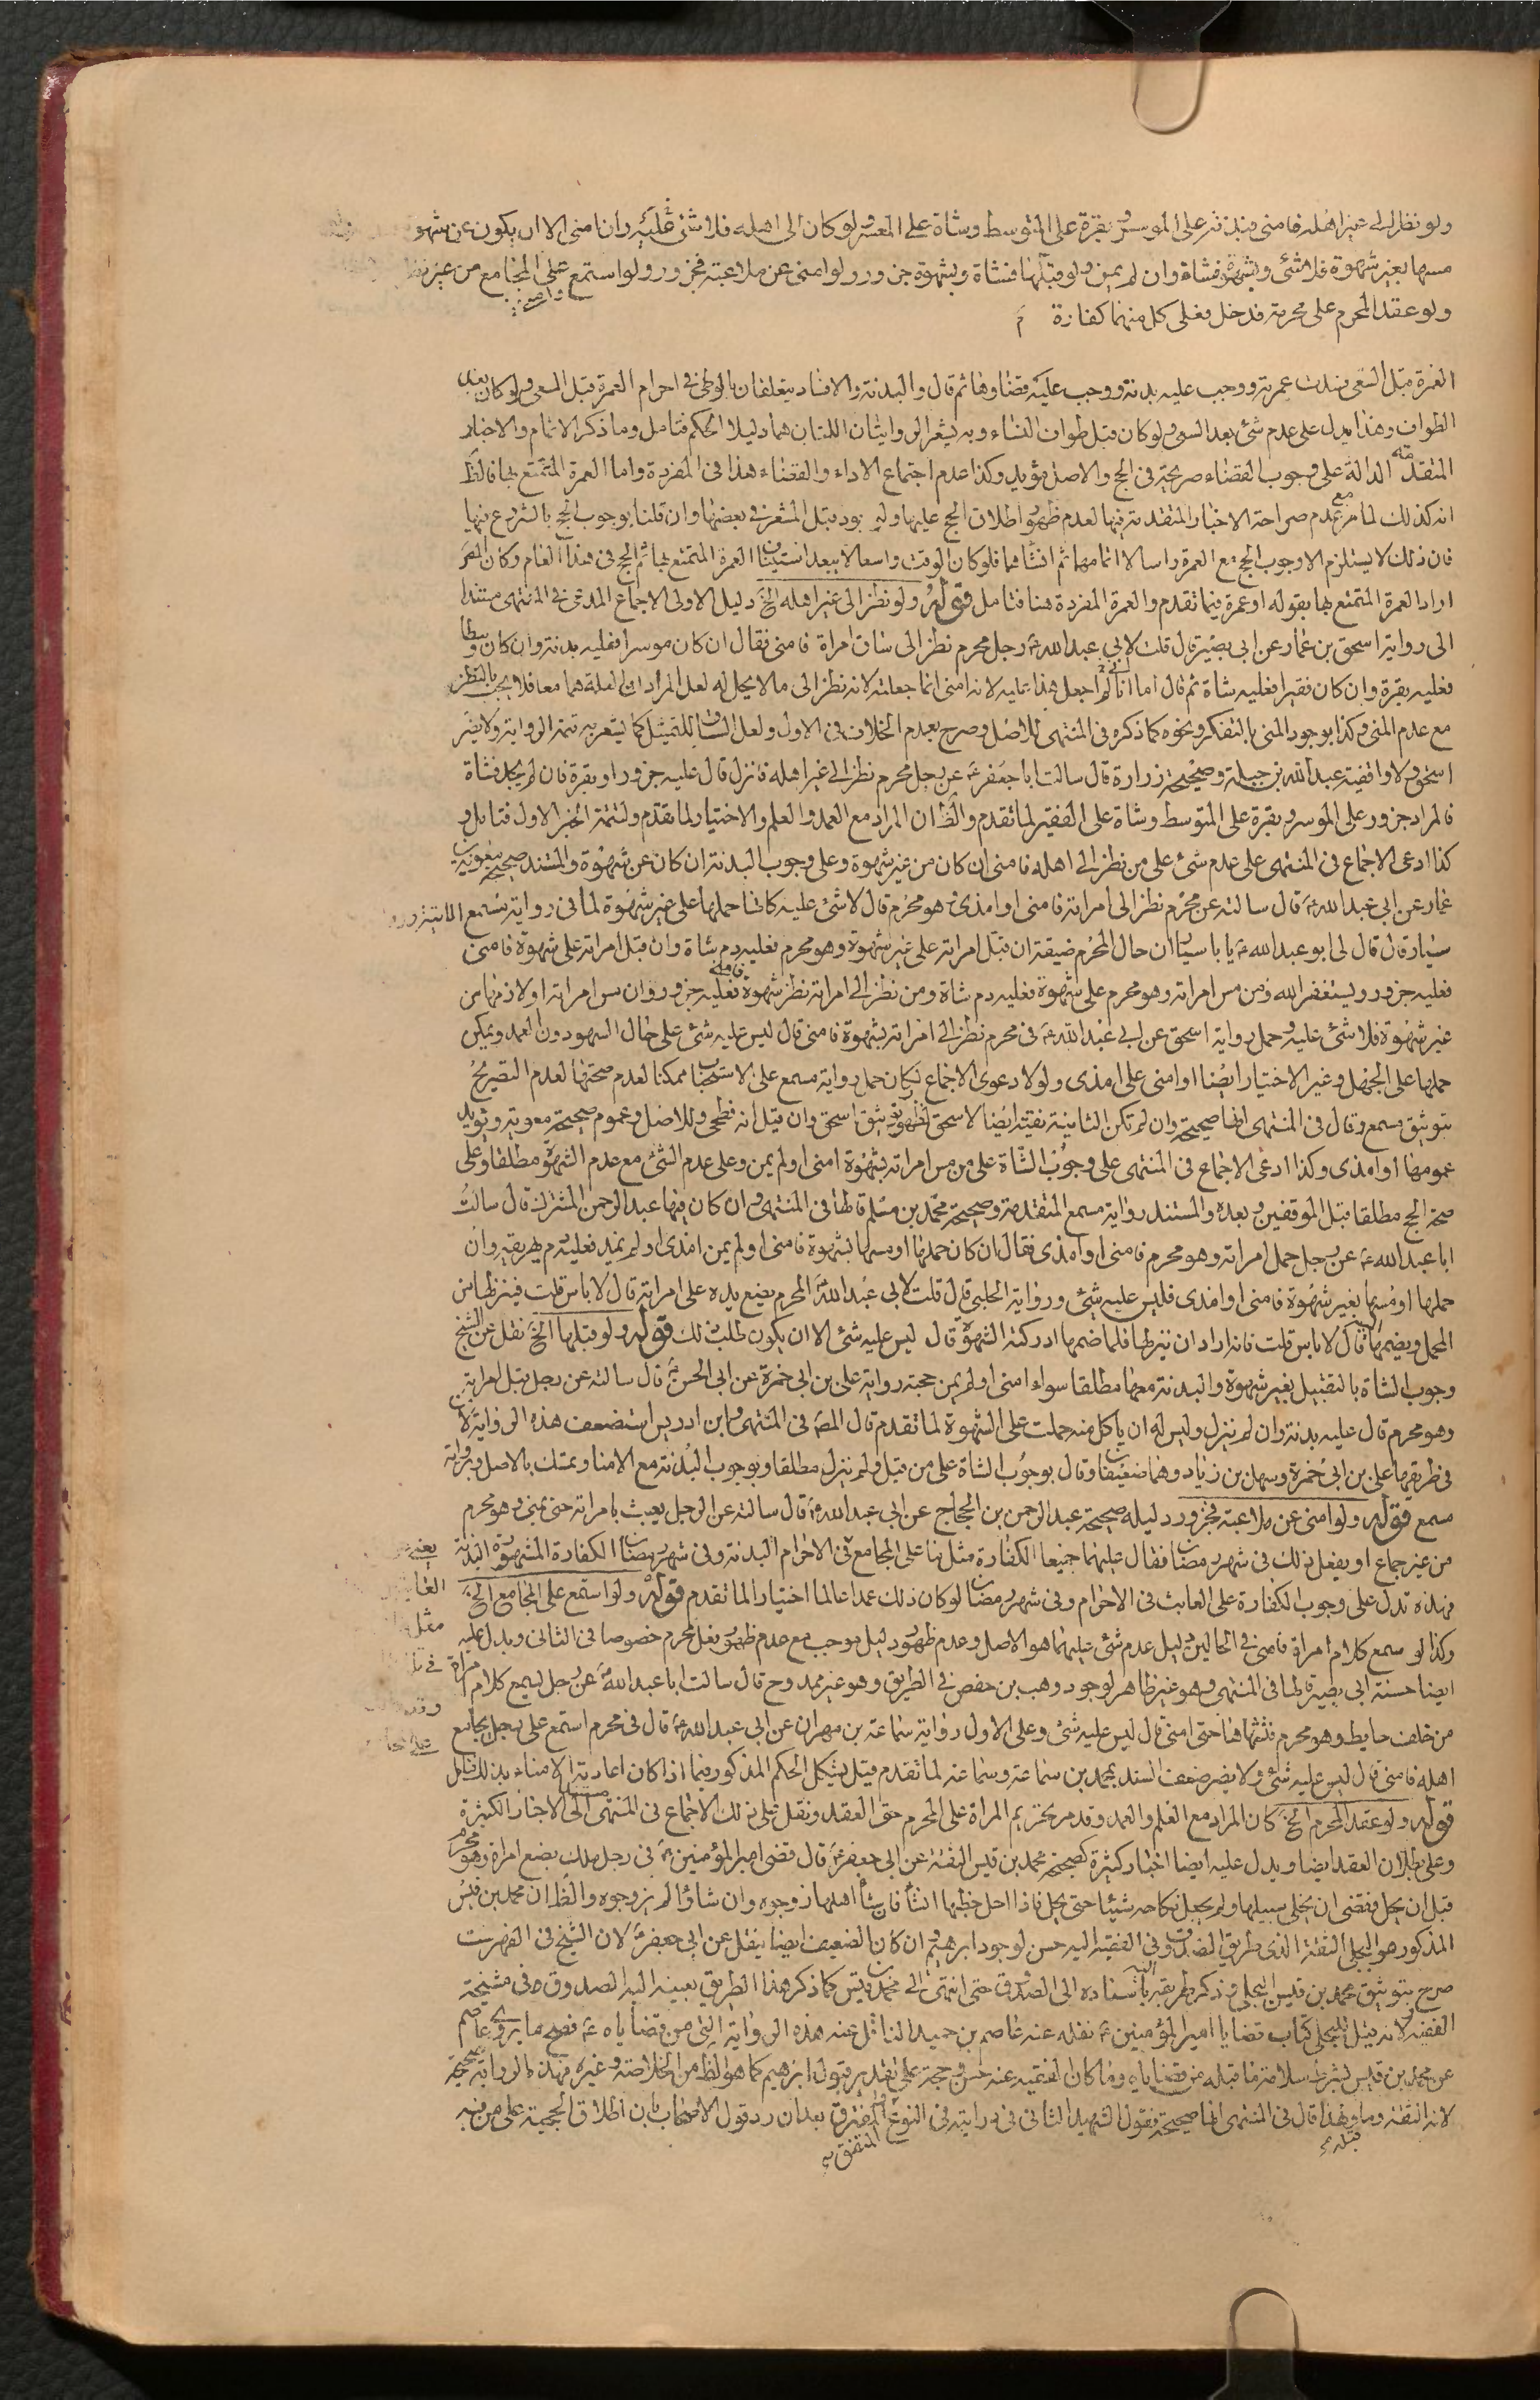 ولو نظر الى غير اهله فامنى فبدنة على الموسر وبقرة على المتوسط وشاة على المعسر ولو كان الى اهله فلا شئ عليه وان امنى الا ان يكون عن شهوة
مسها بغير شهوة فلا شئ وبشهوة فشاة وان لم يمن ولو قبّلها فشاة وبشهوة جزور ولو امنى عن ملاعبة فجزور ولو استمع على المجامع من غير نظر
ولو عقد المحرم على محرمة فدخل فعلى كل منهما كفارة
العمرة قبل السعى فسدت عمرته ووجب عليه بدنة ووجب عليه قضاوها ثم قال والبدنة والافساد يتعلقان بالوطى في احرام العمرة قبل السعى ولو كان بعد
الطواف وهذا يدل على عدم شئ بعد السعى ولو كان قبل طواف النساء وبه يشعر الروايتان اللتان هما دليلا الحكم فتامل وما ذكر الاتمام والاخبار
المتقدمة الدالة على وجوب القضاء صريحة في الحج والاصل مؤيد وكذا عدم اجتماع الاداء والقضاء هذا فى المفردة واما العمرة المتمتع بها فالظ
انه كذلك لما مر مع عدم صراحة الاخبار المتقدمة فيها لعدم ظهور اطلاق الحج عليها ولوجود قبل المشعر فى بعضها وان قلنا بوجوب الحج بالشروع فيها
فان ذلك لا يستلزم الا وجوب الحج مع العمرة راسا لا اتمامها ثم انشائها فلو كان الوقت واسعا لا يبعد استيناف العمرة المتمتع بها ثم الحج فى هذا العام وكان المص
اراد العمرة المتمتع بها بقوله او عمرة فيما تقدم والعمرة المفردة هنا فتامل قوله ولو نظر الى غير اهله الخ دليل الاولى الاجماع المدعى في المنتهى مستندا
الى رواية اسحق بن عمار عن ابى بصير قال قلت لابي عبد الله ع رجل محرم نظر الى ساق امراة فامنى فقال ان كان موسرا فعليه بدنة وان كان وسطا
فعليه بقرة وان كان فقيرا فعليه شاة ثم قال اما انى لم اجعل هذا عليه لانه امنى انما جعلته لانه نظر الى ما لا يحل له لعل المراد ان العلة هما معا فلا يجب بالنظر
مع عدم المنى وكذا بوجود المنى بالتفكر ونحوه كما ذكره فى المنتهى للاصل وصرح بعدم الخلاف فى الاول ولعل الساق للتمثيل كما يشعر به تتمة الرواية ولا يضر
اسحق ولا واقفية عبد الله بن جبلة وصحيحة زرارة قال سالت ابا جعفر ع عن رجل محرم نظر الى غير اهله فانزل قال عليه جزور او بقرة فان لم يجد فشاة
فالمراد جزور على الموسر وبقرة على المتوسط وشاة على الفقير لما تقدم والظ ان المراد مع العمد والعلم والاختيار لما تقدم ولتتمة الخبر الاول فتامل و
كذا ادعى الاجماع فى المنتهى على عدم شئ على من نظر الى اهله فامنى ان كان من غير شهوة وعلى وجوب البدنة ان كان عن شهوة والمستند صحيحة معوية بن
عمار عن ابي عبد الله ع قال سالته عن محرم نظر الى امراته فامنى او امذى وهو محرم قال لا شئ عليه كانها حملها على غير شهوة لما فى رواية مسمع
سيار قال قال لى ابو عبد الله ع يا با سيار ان حال المحرم ضيقة ان قبل امراته على غير شهوة وهو محرم فعليه دم شاة وان قبل امراته على شهوة فامنى
فعليه جزور ويستغفر الله ومن مس امراته وهو محرم على شهوة فعليه دم شاة ومن نظر الى امراته نظر شهوة فامنى فعليه جزور وان مس امراته او لازمها من
غير شهوة فلا شئ عليه وحمل رواية اسحق عن ابى عبد الله ع فى محرم نظر الى امراته بشهوة فامنى قال ليس عليه شئ على حال السهو دون العمد ويمكن
حملها على الجهل وغير الاختيار ايضا او امنى على امذى ولولا دعوى الاجماع لكان حمل رواية مسمع على الاستحباب ممكنا لعدم صحتها لعدم التصريح
بتوثيق مسمع وقال فى المنتهى انها صحيحة وان لم تكن الثانية نقية ايضا لاسحق لظهور توثيق اسحق وان قيل انه فطحى وللاصل وعموم صحيحة معوية ويؤيد
عمومها او امذى وكذا ادعى الاجماع فى المنتهى على وجوب الشاة على من مس امراته بشهوة امنى او لم يمن وعلى عدم الشئ مع عدم الشهوة مطلقا وعلى
صحة الحج مطلقا قبل الموقفين وبعده والمستند رواية مسمع المتقدمة وصحيحة محمد بن مسلم قالها فى المنتهى وان كان فيها عبد الرحمن المشترك قال سالت
ابا عبد الله ع عن رجل حمل امراته وهو محرم فامنى او امذى فقال ان كان حملها او مسها بشهوة فامنى او لم يمن امذى او لم يمذ فعليه دم يهريقه وان
حملها او مسها بغير شهوة فامنى او امذى فليس عليه شئ ورواية الحلبى قال قلت لابى عبد الله ع المحرم يضع يده على امراته قال لا باس قلت فينزلها من
المحمل ويضمها اليه قال لا باس قلت فانه اراد ان ينزلها فلما ضمها ادركته الشهوة قال ليس عليه شئ الا ان يكون طلب ذلك قوله ولو قبلها الخ نقل عن الشيخ
وجوب الشاة بالتقبيل بغير شهوة والبدنة معها مطلقا سواء امنى او لم يمن حجته رواية على بن ابى حمزة عن ابى الحسن ع قال سالته عن رجل قبل امراته
وهو محرم قال عليه بدنة وان لم ينزل وليس له ان ياكل منه حملت على الشهوة لما تقدم قال المص فى المنتهى وابن ادريس استضعف هذه الرواية لان
فى طريقها على بن ابى حمزة وسهل بن زياد وهما ضعيفان وقال بوجوب الشاة على من قبل ولم ينزل مطلقا وبوجوب البدنة مع الامنا وتمسك بالاصل ورواية
مسمع قوله ولو امنى عن ملاعبة فجزور دليله صحيحة عبد الرحمن بن الحجاج عن ابى عبد الله ع قال سالته عن الرجل يعبث بامراته حتى يمنى وهو محرم
من غير جماع او يفعل ذلك فى شهر رمضان فقال عليهما جميعا الكفارة مثل ما على المجامع فى الاحرام البدنة وفى شهر رمضان الكفارة المشهورة البدنة
فهذه تدل على وجوب الكفارة على العابث فى الاحرام وفى شهر رمضان لو كان ذلك عمدا عالما اختيارا لما تقدم قوله ولو استمع على المجامع الخ
وكذا لو سمع كلام امراة فامنى فى الحالين دليل عدم شئ عليهما هو الاصل وعدم ظهور دليل موجب مع عدم ظهور فعل محرم خصوصا فى الثانى ويدل عليه
ايضا حسنة ابى بصير قالها فى المنتهى وهو غير ظاهر لوجود وهب بن حفص في الطريق وهو غير ممدوح قال سالت ابا عبد الله ع عن رجل يسمع كلام امراة
من خلف حايط وهو محرم فتشهاها حتى امنى قال ليس عليه شئ وعلى الاول رواية سماعة بن مهران عن ابى عبد الله ع قال فى محرم استمع على رجل يجامع
اهله فامنى قال ليس عليه شئ ولا يضر ضعف السند بمحمد بن سماعة وسماعة لما تقدم قيل يشكل الحكم المذكور فيما اذا كان اعادته الامناء بذلك فتامل
قوله ولو عقد المحرم الخ كان المراد مع العلم والعمد وقد مر تحريم المراة على المحرم حق العقد ونقل على ذلك الاجماع فى المنتهى الى الاخبار الكثيرة
وعلى بطلان العقد ايضا ويدل عليه ايضا اخبار كثيرة كصحيحة محمد بن قيس الثقة عن ابى جعفر ع قال قضى امير المؤمنين ع فى رجل ملك بضع امراة وهو محرم
قبل ان يحل فقضى ان يخلى سبيلها ولم يجعل نكاحه شيئا حتى يحل فاذا احل خطبها ان شا فان شا اهلها زوجوه وان شاؤا لم يزوجوه والظ ان محمد بن قيس
المذكور هو البجلى الثقة الذى طريق الصدوق فى الفقيه اليه حسن لوجود ابرهيم وان كان الضعيف ايضا ينقل عن ابى جعفر ع لان الشيخ فى الفهرست
صرح بتوثيق محمد بن قيس البجلى وذكر طريقه باسناده الى الصدوق حتى انتهى الى محمد بن قيس كما ذكر هذا الطريق بعينه اليه الصدوق ره فى مشيخة
الفقيه لانه قيل للبجلى كتاب قضايا امير المؤمنين ع نقله عنه عاصم بن حميد الناقل عنه هذه الرواية التى من قضاياه ع فصح ما يرويه عاصم
عن محمد بن قيس بشرط سلامة ما قبله من قضاياه وما كان الفقيه عنه حسن وحجة على تقدير قبول ابرهيم كما هو الظ من الخلاصة وغيره فهذه الرواية صحيحة
لانه الثقة وما قبله ولهذا قال فى المنتهى انها صحيحة فقول الشهيد الثانى فى درايته فى النوع المتفق والمفترق بعد ان رد قول الاصحاب بان اطلاق الحجية على من فيه